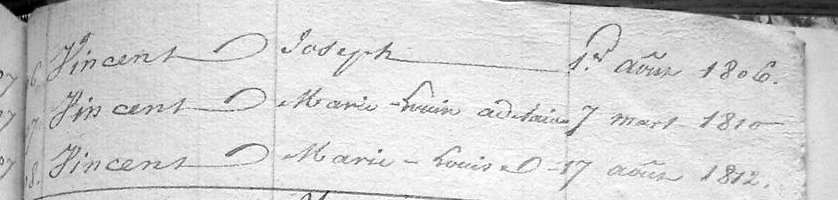 6 Vincent Joseph 1er août 1806.
7 Vincent Marie-Louise adelaide 7 mars 1810
8. Vincent Marie-Louise 17 août 1812.